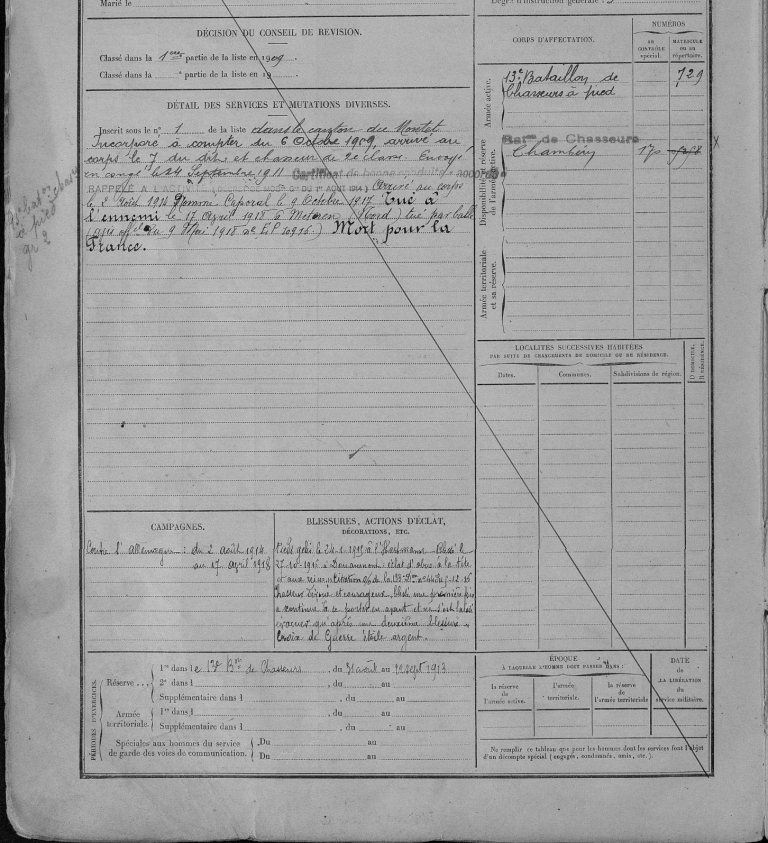 Marié le
DÉCISION DU CONSEIL DE REVISION.
Classé dans la 1ère partie de la liste en 1909.
Classé dans la " partie de la liste en 19
DÉTAIL DES SERVICES ET MUTATIONS DIVERSES.
Inscrit sous le n° 1 de la liste dans le canton du Montet
Incorporé à compter du 6 Octobre 1909, arrivé au
corps le 7 du dit et chasseur de 2e classe. Envoyé
en congé le 24 Septembre 1911 Certificat de bonne conduite accordé
RAPPELÉ A L'ACTIVITÉ Arrivé au corps
le 2 Août 1914 Nommé Caporal le 9 Octobre 1917 Tué à
l'ennemi le 17 Avril 1918 à Meteren (Nord) tué par balle
(avis off. du 9 Mai 1918 ) Mort pour la
France.
CAMPAGNES.
Contre l'Allemagne : du 2 août 1914
au 17 avril 1918
BLESSURES, ACTIONS D'ÉCLAT,
DÉCORATIONS, ETC.
Pieds gelés le 24-1-1915 à l'Hartmann Blessé le
27-10-1916 à Douaumont éclat d'obus à la tête
et aux reins
Chasseur dévoué et courageux. Blessé une première fois
a continué à se porter en avant et ne s'est laissé
évacuer qu'après une deuxième blessure
Croix de Guerre étoile argent.
PÉRIODES D'EXERCICES.
Réserve
1re dans le 13e Bon de Chasseurs, du 31 août au 22 sept 1913
2e dans l , du au
Supplémentaire dans l , du au
Armée territoriale.
1re dans l , du au
Supplémentaire dans l , du au
Spéciales aux hommes du service
de garde des voies de communication.
Du au
Du au
Degré d'instruction générale : 3
CORPS D'AFFECTATION.
NUMÉROS
AU CONTRÔLE spécial.
MATRICULE ou au répertoire.
Armée active.
13e Bataillon de 729
Chasseurs à pied
Disponibilité et réserve de l'armée active.
Baton de Chasseurs
Chambéry
Armée territoriale et sa réserve.
LOCALITÉS SUCCESSIVES HABITÉES
PAR SUITE DE CHANGEMENTS DE DOMICILE OU DE RÉSIDENCE.
Dates.
Communes.
Subdivisions de région.
D DOMICILE.
R RÉSIDENCE.
ÉPOQUE
À LAQUELLE L'HOMME DOIT PASSER DANS :
la réserve de l'armée active.
l'armée territoriale.
la réserve de l'armée territoriale
DATE
de
LA LIBÉRATION
du service militaire.
Ne remplir ce tableau que pour les hommes dont les services font l'objet
d'un décompte spécial (engagés, condamnés, omis, etc.).